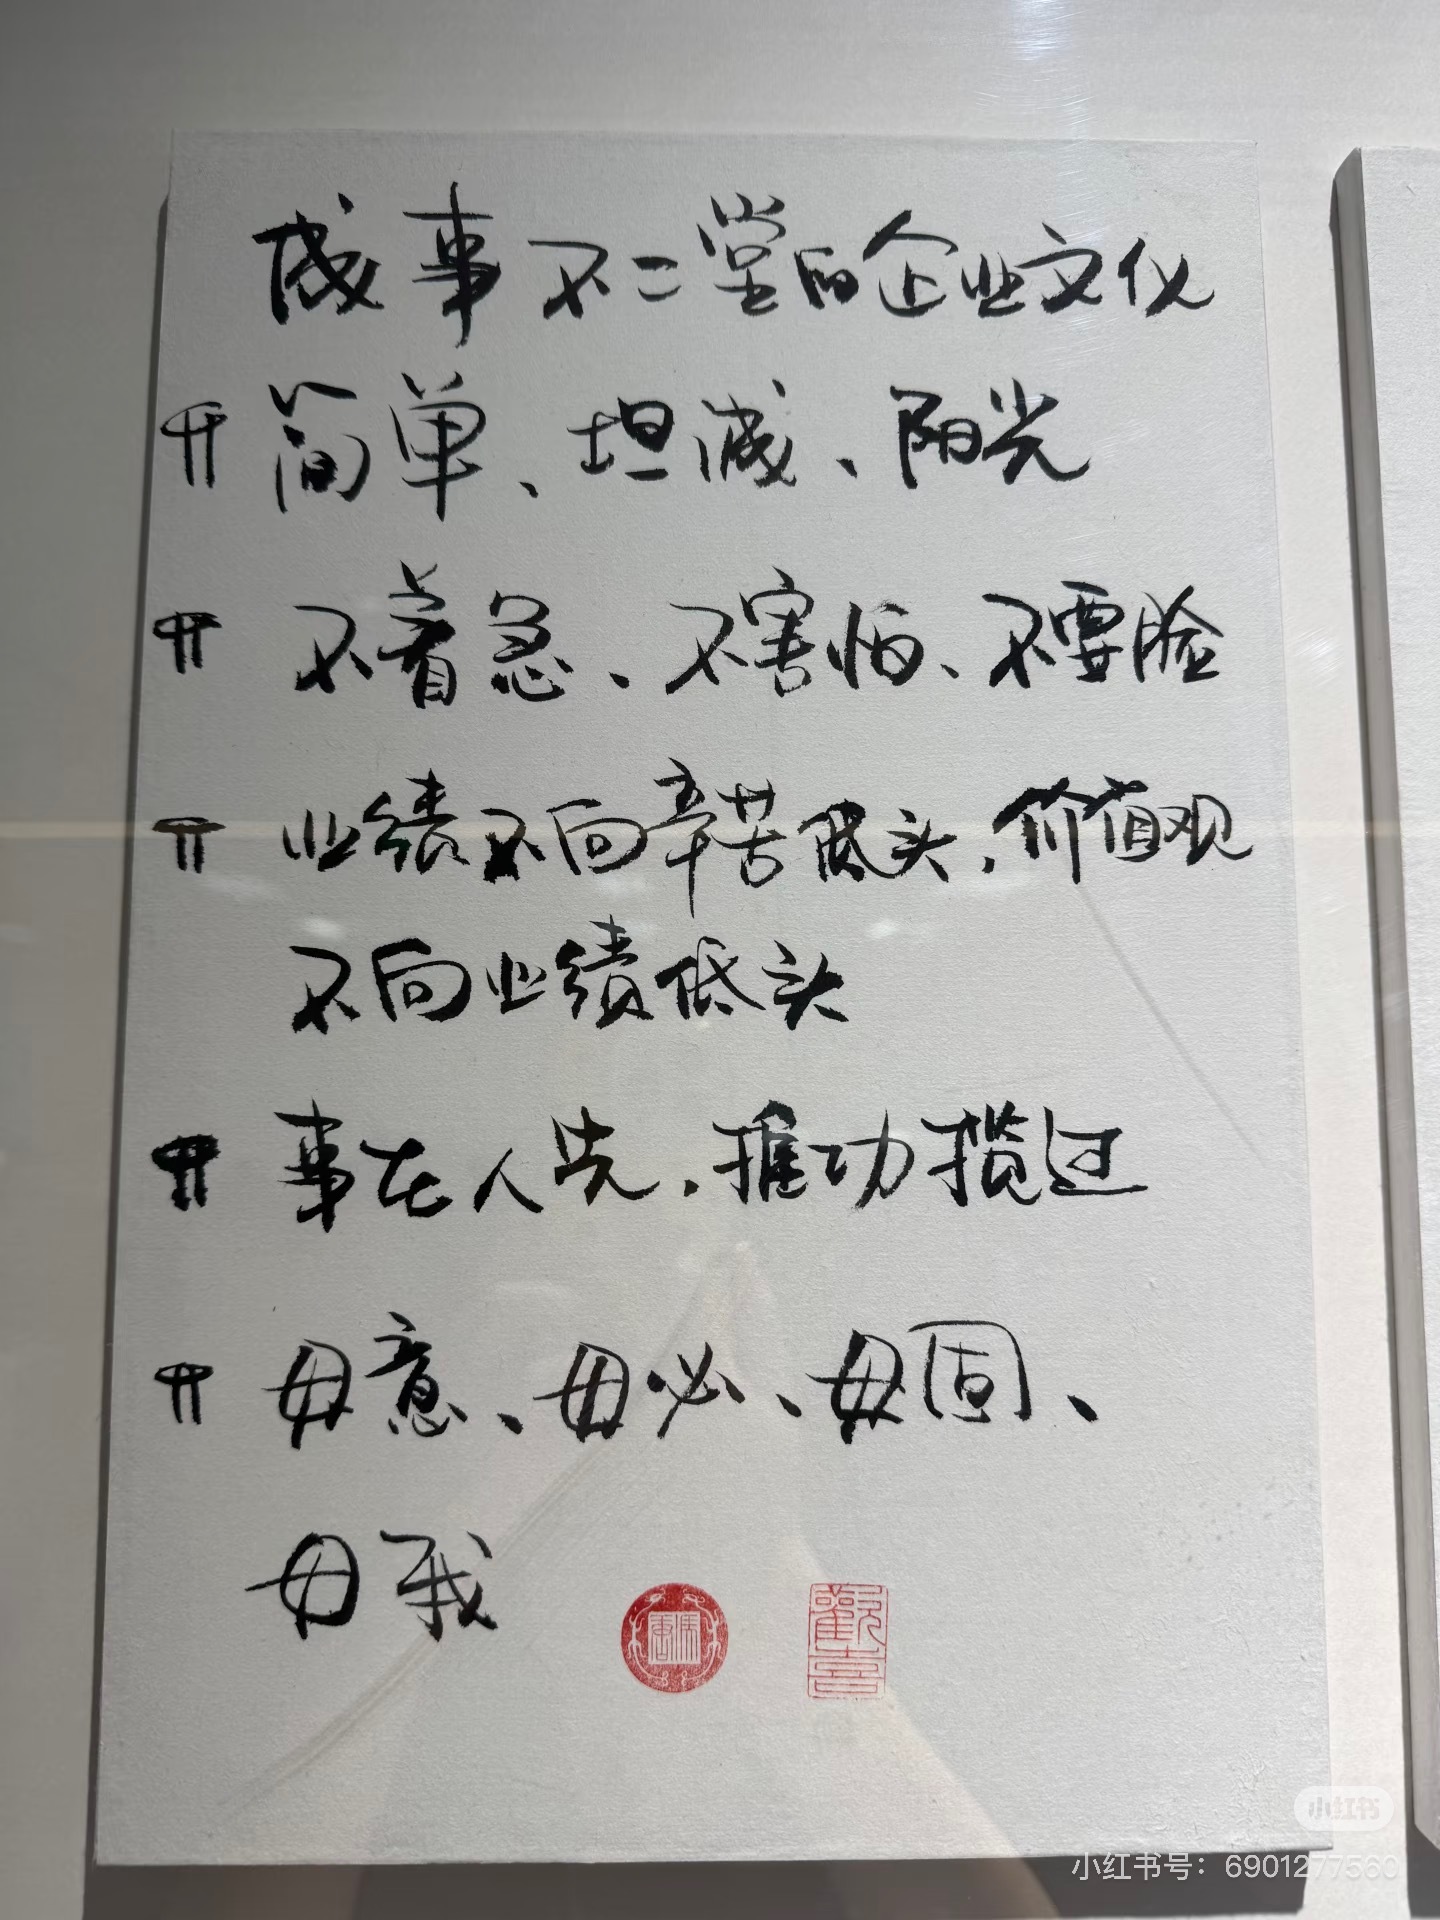 成事不二堂的企业文化
简单、坦诚、阳光
不着急、不害怕、不要脸
业绩不向辛苦低头，价值观
不向业绩低头
事在人先，推功揽过
毋意、毋必、毋固、
毋我
小红书
小红书号：6901277560